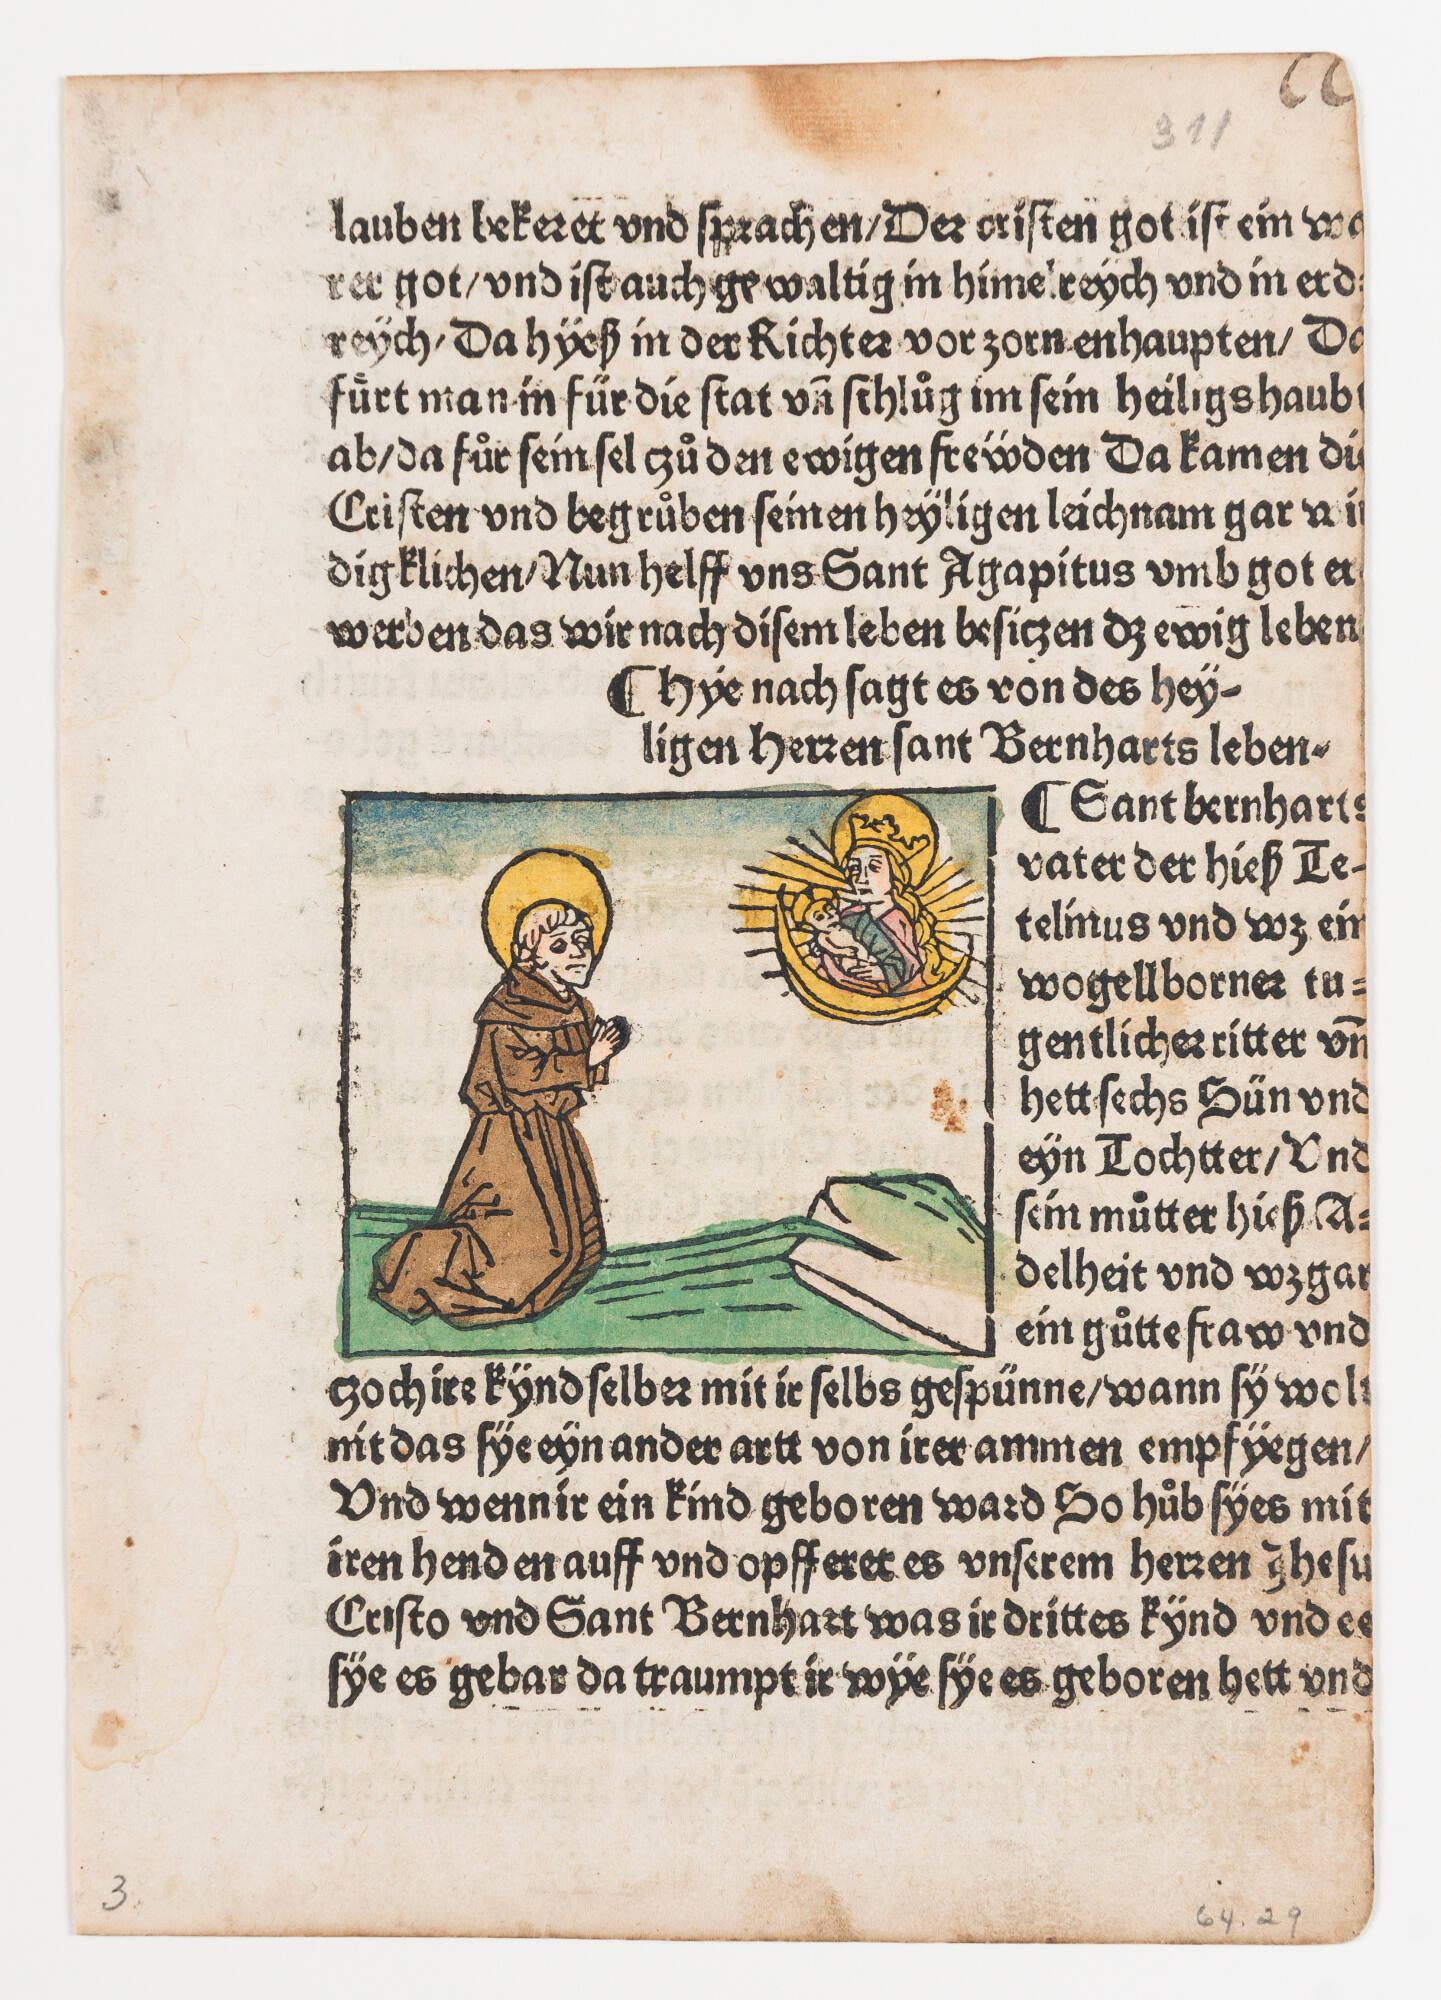 CC
311
lauben bekeret vnd sprachen/Der cristen got ist ein wa
rer got/vnd ist auch gewaltig in himelreÿch vnd in erd⸗
reÿch/Da hÿeß in der Richter vor zorn enhaupten/ Da
fuͤrt man in für die stat vn̄ schluͦg im sein heiligs haubt
ab/da fuͦr sein sel czuͦ den ewigen freẅden Da kamen die
Cristen vnd begruͦben seinen heÿligen leichnam gar wir
digklichen/Nun helff vns Sant Agapitus vmb got er
werben das wir nach disem leben besiczen dz ewig leben
¶ Hÿe nach sagt es von des heÿ⸗
ligen Herren sant Bernharts leben⸗
¶ Sant bernharts
vater der hieß Te⸗
telinus vnd wz ein
wogellborner tu⸗
gentlicher ritter vn̄
hett sechs Sün vnd
eÿn Tochtter/Vnd
sein muͦtter hieß A⸗
delheit vnd wz gar
ein guͦtte fraw vnd
czoch ire kÿnd selber mit ir selbs gespünne/wann sÿ wolt
nit das sÿe eÿn ander artt von irer ammen empfÿegen/
Vnd wenn ir ein kind geboren ward So huͦb sÿes mit
iren henden auff vnd opfferet es vnserem herren Jhesu
Cristo vnd Sant Bernhart was ir drittes kÿnd vnd ee
sÿe es gebar da traumpt ir wÿe sÿe es geboren hett vnd
3.
64.29